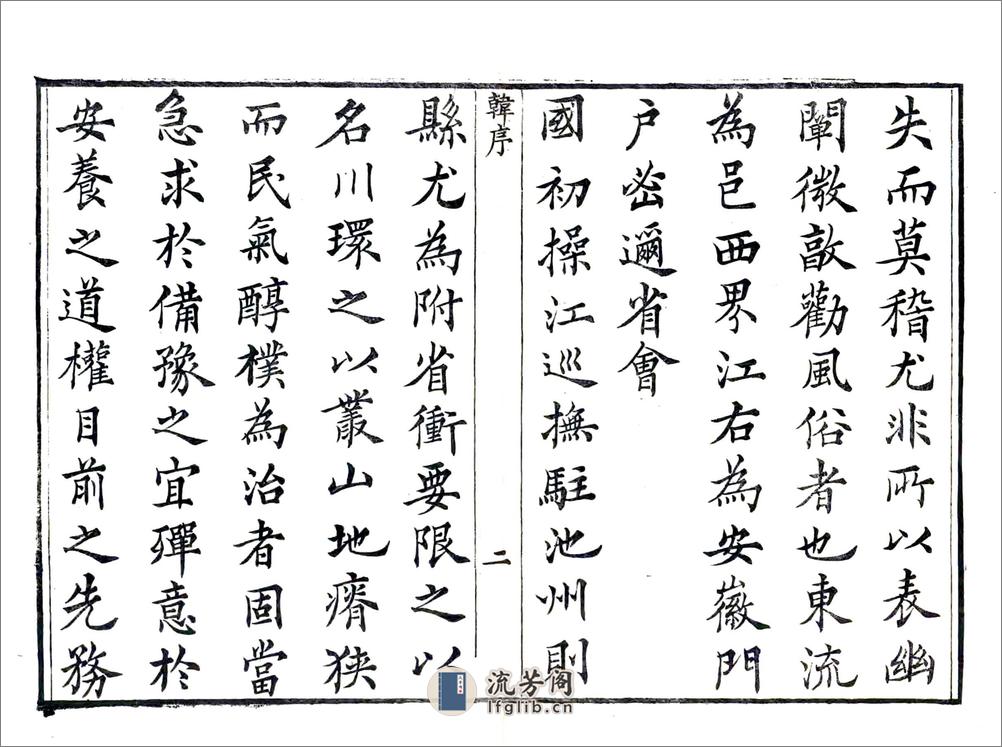 失而莫稽尤非所以表幽
闡微敦勸風俗者也東流
為邑西界江右為安徽門
户密邇省會
國初操江巡撫駐池州則
韓序
二
縣尤為附省衝要限之以
名川環之以叢山地瘠狭
而民氣醇樸為治者固當
急求於備豫之宜殫意於
安養之道權目前之先務
流芳阁
lfglib.cn